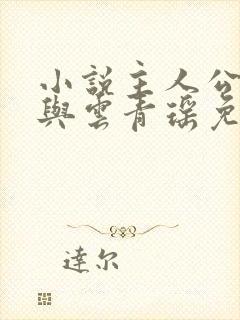 小說主人公
與雲青瑤免
達尔